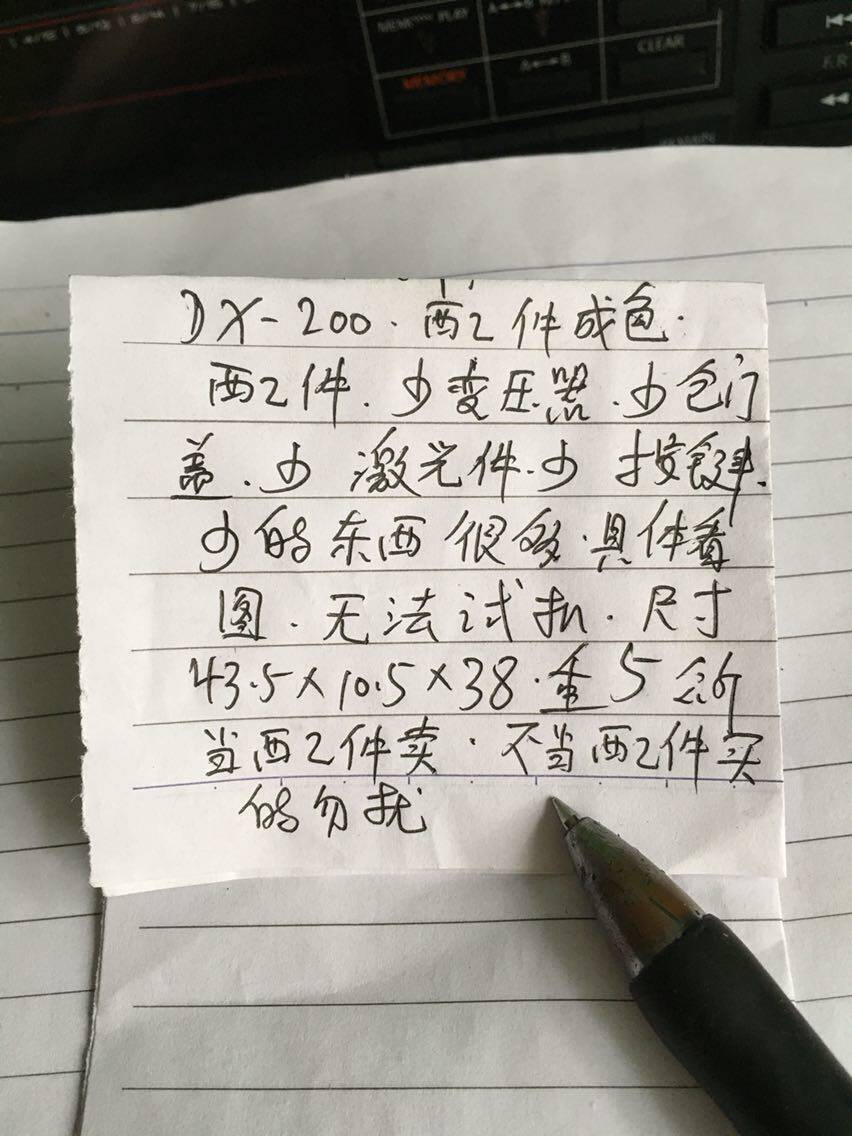 CLEAR
MEMORY
A↔B
DX-200.配件成色.
配件.少变压器.少仓门
盖.少激光件.少按键.
少的东西很多.具体看
图.无法试机.尺寸
43.5×10.5×38.重5公斤
当配件卖.不当配件买
的勿扰